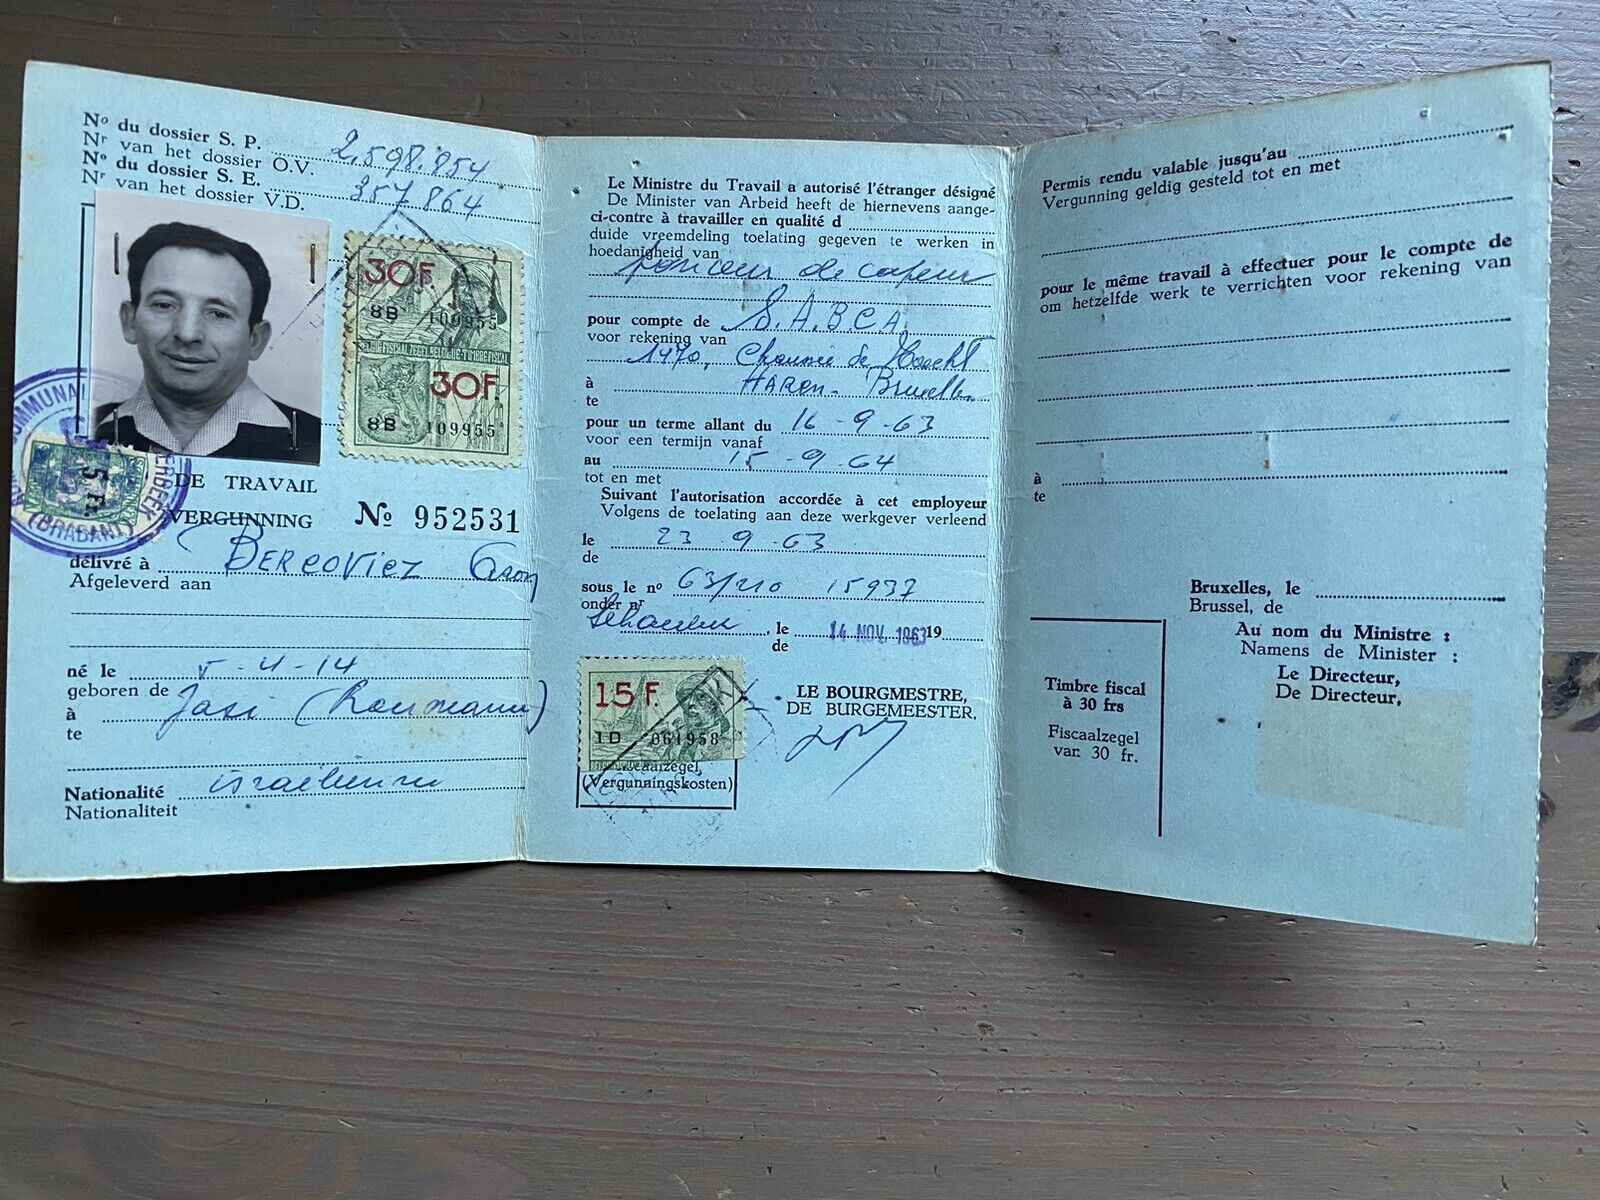 Nº du dossier S. P. 2.598.854
Nr van het dossier O.V.
Nº du dossier S. E. 357864
Nr van het dossier V.D.
30F.
8B 109955
30F.
8B 109955
COMMUNAL
5 F.
(BRABANT)
DE TRAVAIL
VERGUNNING Nº 952531
délivré à Bercovicz
Afgeleverd aan
né le 5-4-14
geboren de
à Jasi (Roumanie)
te
Nationalité israélienne
Nationaliteit
Le Ministre du Travail a autorisé l'étranger désigné
De Minister van Arbeid heeft de hiernevens aange-
ci-contre à travailler en qualité d
duide vreemdeling toelating gegeven te werken in
hoedanigheid van
ponceur de vapeur
pour compte de S.A.B.C.A.
voor rekening van
1470, Chaussée de Haecht
à HAREN - Bruxelles
te
pour un terme allant du 16-9-63
voor een termijn vanaf
au 15-9-64
tot en met
Suivant l'autorisation accordée à cet employeur
Volgens de toelating aan deze werkgever verleend
le 23 9-63
de
sous le nº 63/210 15937
onder nr
, le 14 NOV. 1963 19
de
15 F.
1D 061958
Fiscaalzegel
(Vergunningskosten)
LE BOURGMESTRE,
DE BURGEMEESTER,
Permis rendu valable jusqu'au
Vergunning geldig gesteld tot en met
pour le même travail à effectuer pour le compte de
om hetzelfde werk te verrichten voor rekening van
à
te
Bruxelles, le
Brussel, de
Au nom du Ministre :
Namens de Minister :
Le Directeur,
De Directeur,
Timbre fiscal
à 30 frs
Fiscaalzegel
van 30 fr.